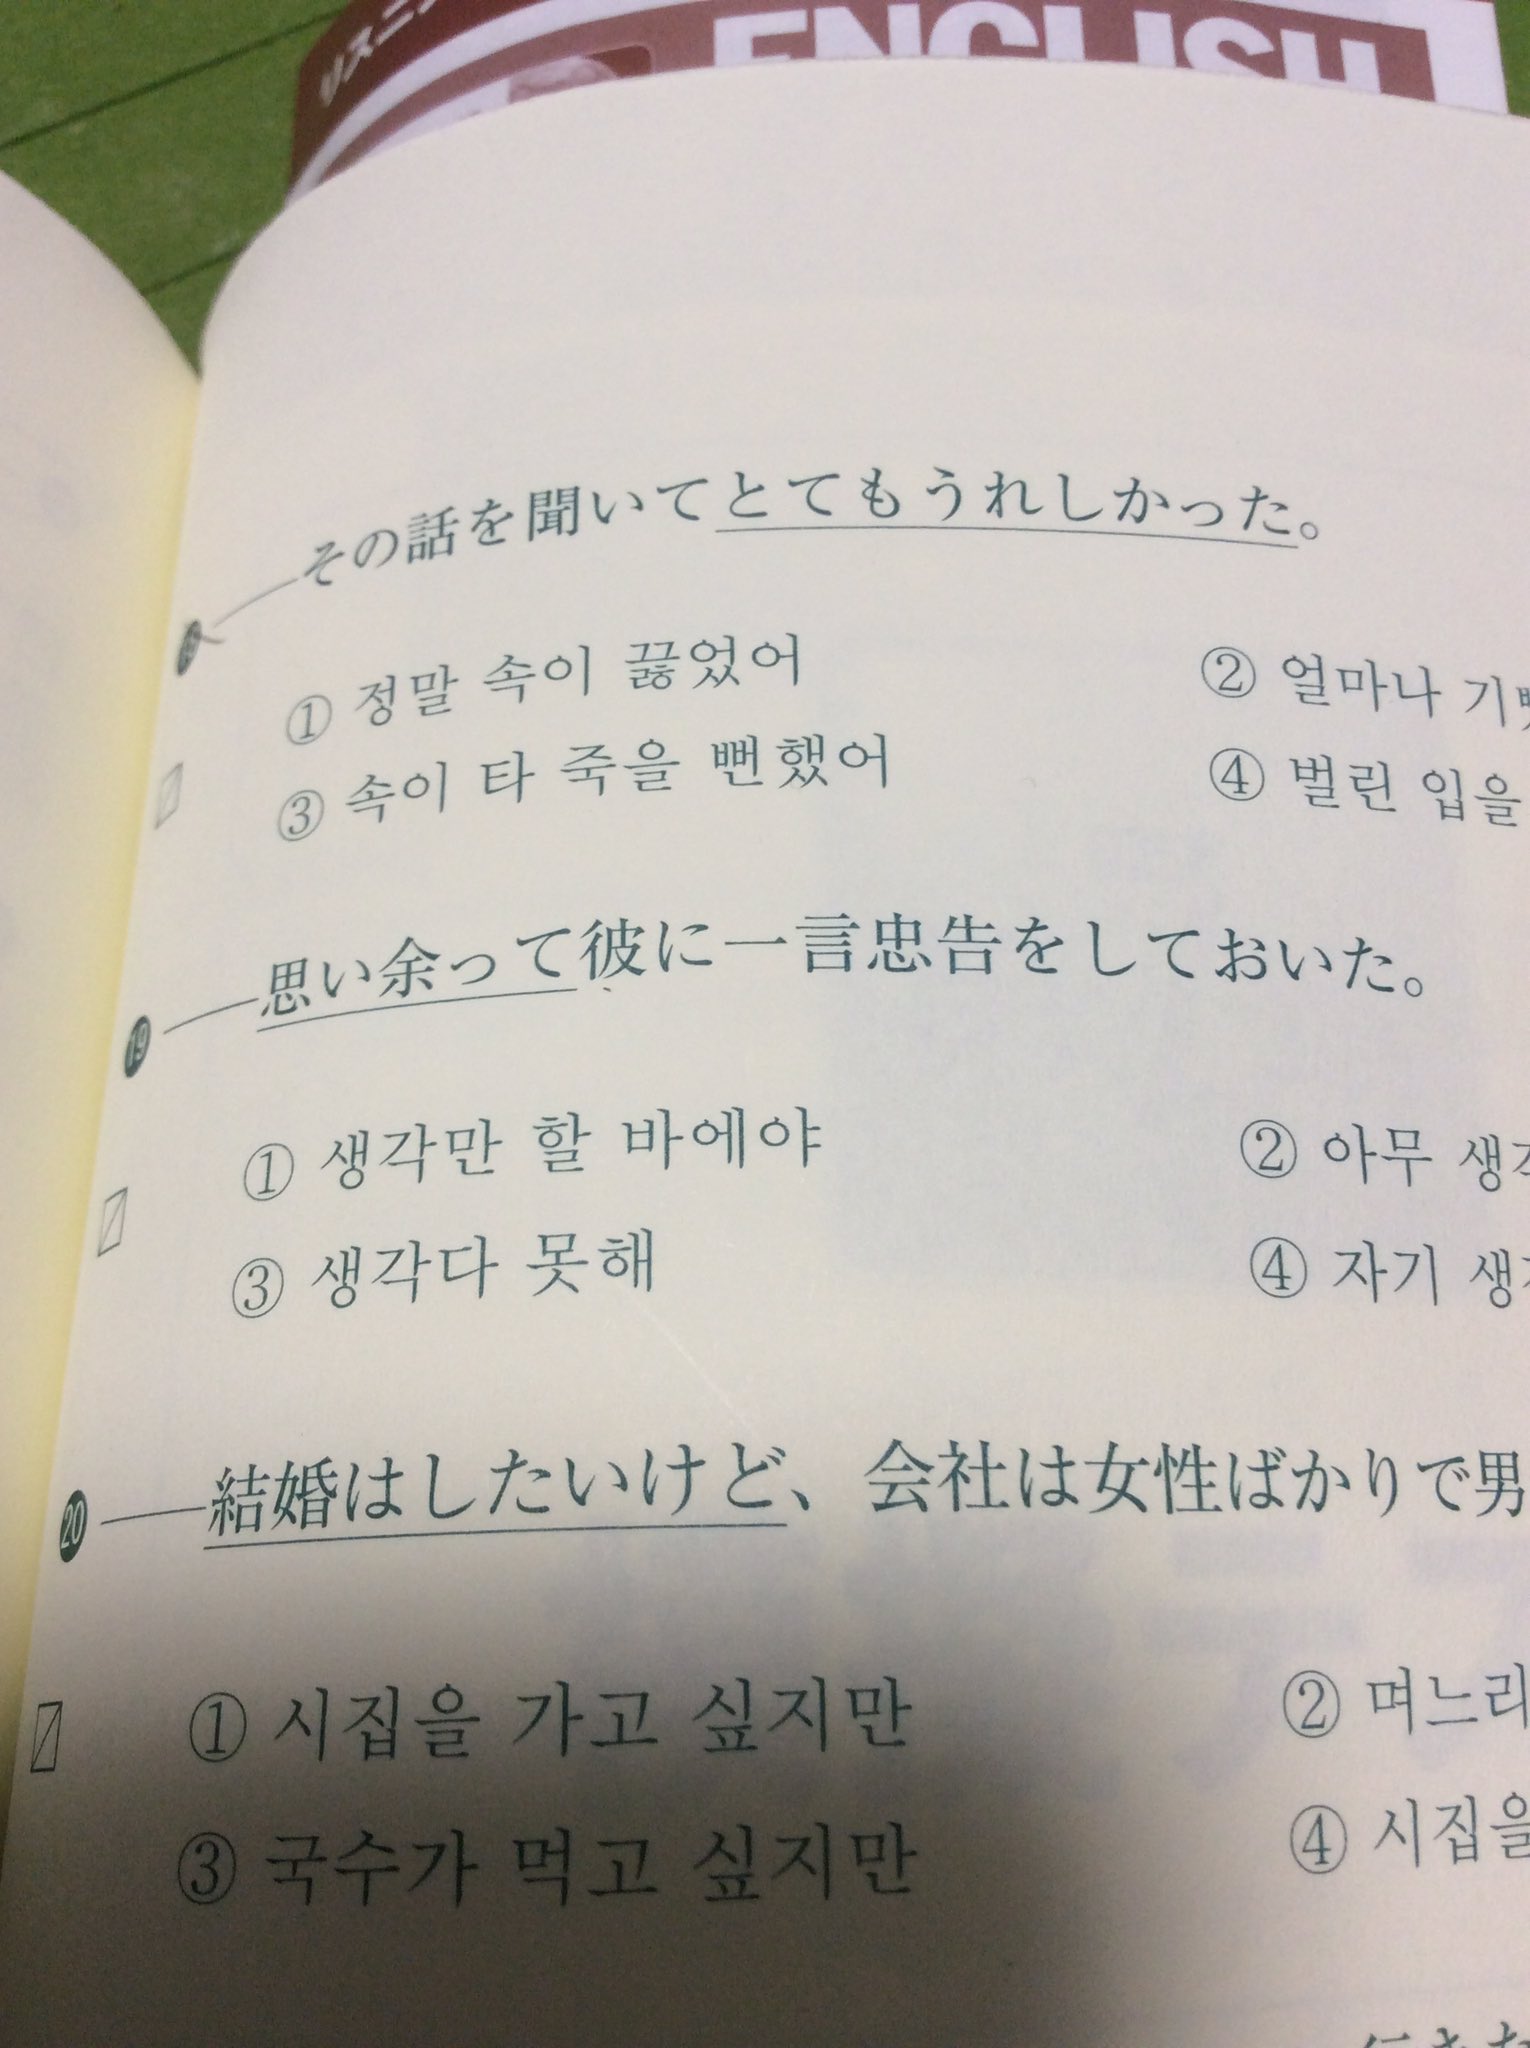 ENGLISH
その話を聞いてとてもうれしかった。
① 정말 속이 끓었어 ② 얼마나
③ 속이 타 죽을 뻔했어 ④ 벌린 입을
⑲ 思い余って彼に一言忠告をしておいた。
① 생각만 할 바에야 ② 아무
③ 생각다 못해 ④ 자기
⑳ 結婚はしたいけど、会社は女性ばかりで男
① 시집을 가고 싶지만 ② 며느리
③ 국수가 먹고 싶지만 ④ 시집을